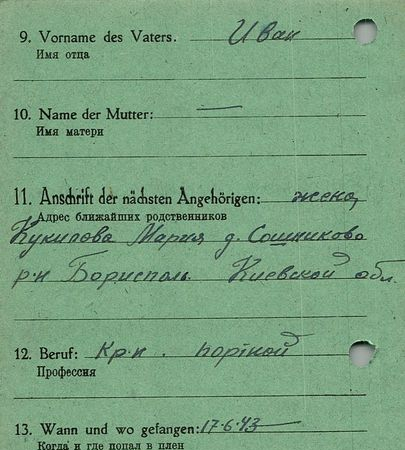 9. Vorname des Vaters. Иван
Имя отца
10. Name der Mutter: —
Имя матери
11. Anschrift der nächsten Angehörigen: жена,
Адрес ближайших родственников
Кукилова Мария д. Сошниково
р-н Бориспољ Киевской обл.
12. Beruf: кр-н. портной
Профессия
13. Wann und wo gefangen: 17.6.43
Когда и где попал в плен